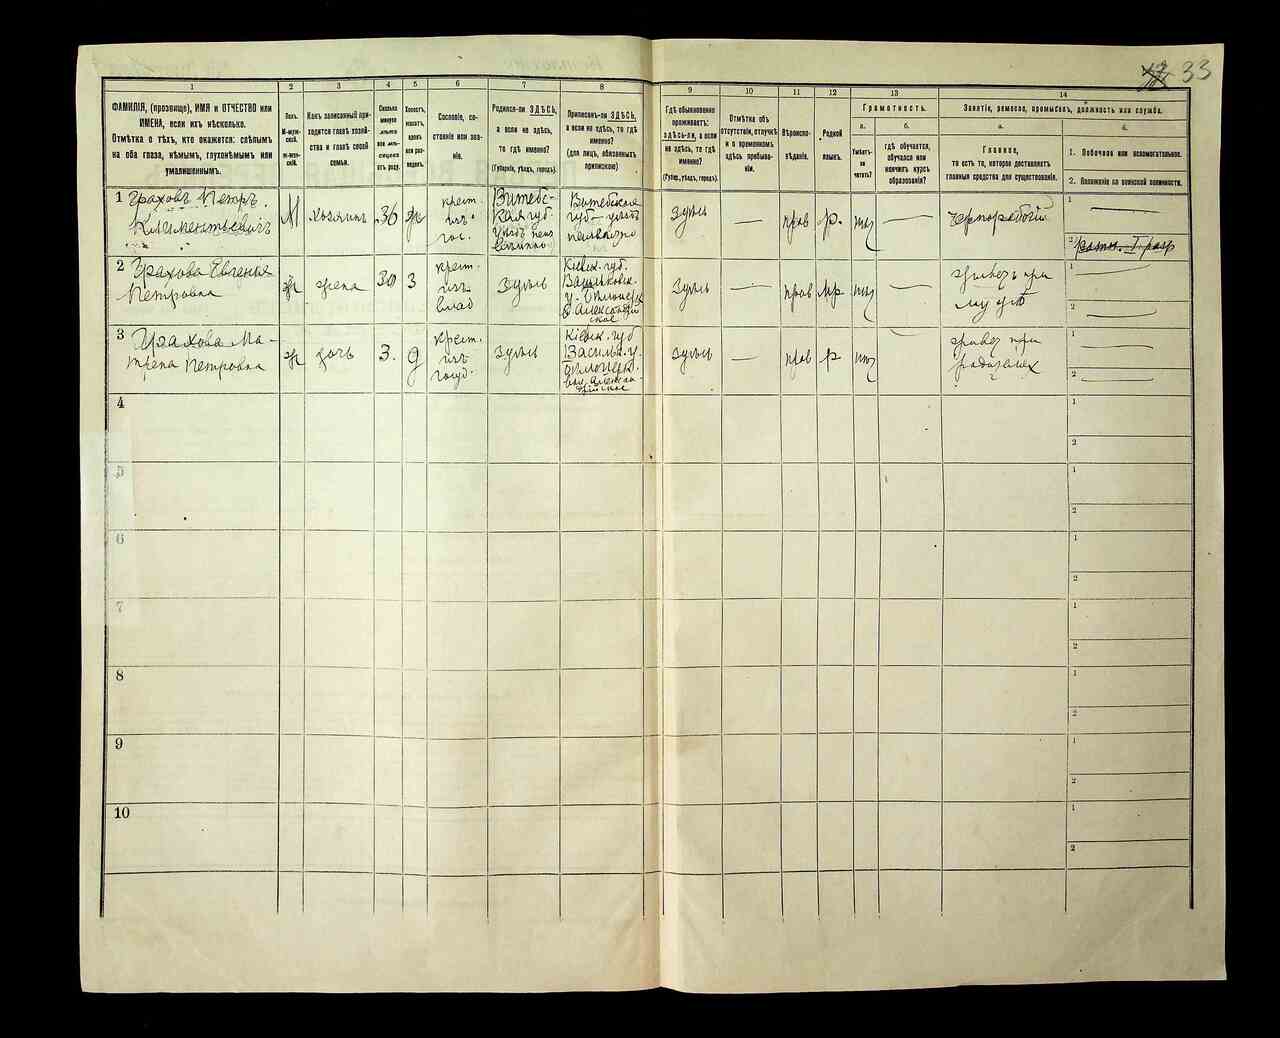 33
1
2
3
4
5
6
7
8
9
10
11
12
13
14
ФАМИЛІЯ, (прозвище), ИМЯ и ОТЧЕСТВО или
ИМЕНА, если ихъ нѣсколько.
Отмѣтка о тѣхъ, кто окажется: слѣпымъ
на оба глаза, нѣмымъ, глухонѣмымъ или
умалишеннымъ.
Полъ.
М-муж-
ской.
Ж-жен-
скій.
Какъ записанный при-
ходится главѣ хозяй-
ства и главѣ своей
семьи.
Сколько
минуло
лѣтъ
или мѣ-
сяцевъ
отъ роду.
Холостъ,
женатъ,
вдовъ
или раз-
веденъ.
Сословіе, со-
стояніе или зва-
ніе.
Родился-ли ЗДѢСЬ,
а если не здѣсь,
то гдѣ именно?
(Губернія, уѣздъ, городъ).
Приписанъ-ли ЗДѢСЬ,
а если не здѣсь, то гдѣ
именно?
(для лицъ, обязанныхъ
припискою)
Гдѣ обыкновенно
проживаетъ:
здѣсь-ли, а если
не здѣсь, то гдѣ
именно?
(Губер., уѣздъ, городъ).
Отмѣтка объ
отсутствіи, отлучкѣ
и о временномъ
здѣсь пребыва-
ніи.
Вѣроиспо-
вѣданіе.
Родной
языкъ.
Грамотность.
а.
б.
Умѣетъ-
ли
читать?
гдѣ обучается,
обучался или
кончилъ курсъ
образованія?
Занятіе, ремесло, промыселъ, должность или служба.
а.
Главное,
то есть то, которое доставляетъ
главныя средства для существованія.
б.
1. Побочное или вспомогательное.
2. Положеніе по воинской повинности.
1 Граховъ Петръ
Климентьевичъ
М хозяинъ 36 ж
крест.
изъ
гос.
Витеб-
ская губ.
Витебская
губ. уѣздъ
здѣсь — прав р.
чернорабочій
1
2 ратн. I разр
2 Грахова Евгенія
Петровна
ж жена 30 з
крест.
изъ
влад
здѣсь
Кіевск. губ.
Васильковск.
у.
здѣсь — прав
живетъ при
мужѣ
1
2
3 Грахова Ма-
трена Петровна
ж дочь 3. д
крест.
изъ
госуд.
здѣсь
Кіевск. губ
Васильк. у.
здѣсь — прав р
живетъ при
родителяхъ
1
2
4
1
2
5
1
2
6
1
2
7
1
2
8
1
2
9
1
2
10
1
2